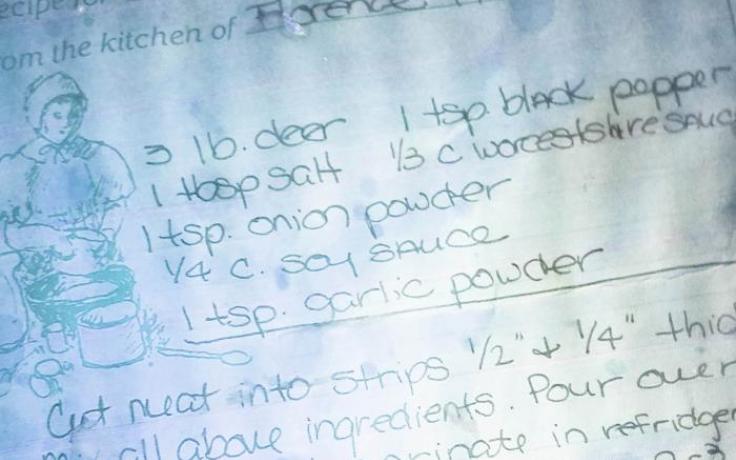 ecipe for
om the kitchen of Florence
3 lb. deer 1 tsp. black pepper
1 tbsp salt 1/3 c worcestshire sauc
1 tsp. onion powder
1/4 c. soy sauce
1 tsp. garlic powder
Cut meat into strips 1/2" + 1/4" thic
all above ingredients. Pour over
arinate in refridger